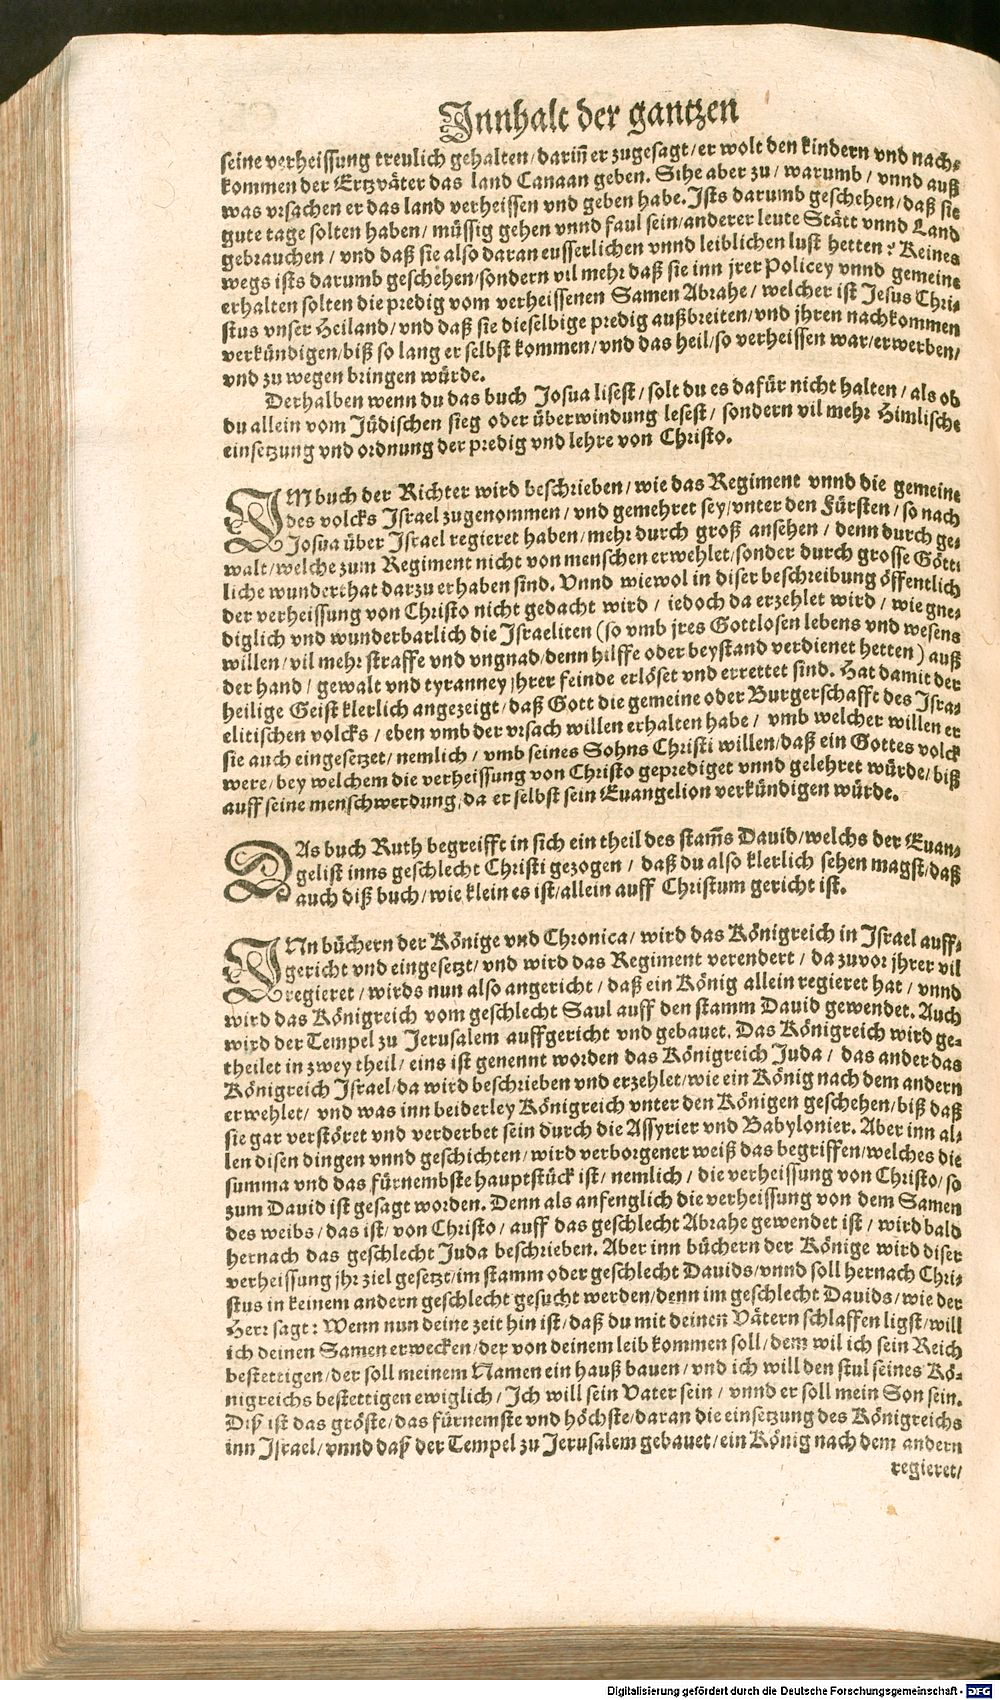 Innhalt der gantzen
seine verheissung treulich gehalten/ darin̄ er zugesagt/ er wolt den kindern vnd nach-
kommen der Ertzväter das land Canaan geben. Sihe aber zu/ warumb/ vnnd auß
was vrsachen er das land verheissen vnd geben habe. Ists darumb geschehen/ daß sie
gute tage solten haben/ müssig gehen vnnd faul sein/ anderer leute Stätt vnnd Land
gebrauchen/ vnd daß sie also daran eusserlichen vnnd leiblichen lust hetten? Keines
wegs ists darumb geschehen/ sondern vil mehr daß sie inn jrer Policey vnnd gemeine
erhalten solten die predig vom verheissenen Samen Abrahe/ welcher ist Jesus Chri-
stus vnser Heiland/ vnd daß sie dieselbige predig außbreiten/ vnd jhren nachkommen
verkündigen/ biß so lang er selbst kommen/ vnd das heil/ so verheissen war/ erwerben/
vnd zu wegen bringen würde.
Derhalben wenn du das buch Josua lisest/ solt du es dafür nicht halten/ als ob
du allein vom Jüdischen sieg oder überwindung lesest/ sondern vil mehr Himlische
einsetzung vnd ordnung der predig vnd lehre von Christo.
IM buch der Richter wird beschrieben/ wie das Regiment vnnd die gemeine
des volcks Israel zugenommen/ vnd gemehret sey/ vnter den Fürsten/ so nach
Josua über Israel regieret haben/ mehr durch groß ansehen/ denn durch ge-
walt/ welche zum Regiment nicht von menschen erwehlet/ sonder durch grosse Gött-
liche wunderthat darzu erhaben sind. Vnnd wiewol in diser beschreibung öffentlich
der verheissung von Christo nicht gedacht wird/ iedoch da erzehlet wird/ wie gne-
diglich vnd wunderbarlich die Israeliten (so vmb jres Gottlosen lebens vnd wesens
willen/ vil mehr straffe vnd vngnad/ denn hilffe oder beystand verdienet hetten) auß
der hand/ gewalt vnd tyranney jhrer feinde erlöset vnd errettet sind. Hat damit der
heilige Geist klerlich angezeigt/ daß Gott die gemeine oder Burgerschafft des Isra-
elitischen volcks/ eben vmb der vrsach willen erhalten habe/ vmb welcher willen er
sie auch eingesetzet/ nemlich/ vmb seines Sohns Christi willen/ daß ein Gottes volck
were/ bey welchem die verheissung von Christo geprediget vnnd gelehret würde/ biß
auff seine menschwerdung/ da er selbst sein Euangelion verkündigen würde.
DAs buch Ruth begreifft in sich ein theil des stam̄s Dauid/ welchs der Euan-
gelist inns geschlecht Christi gezogen/ daß du also klerlich sehen magst/ daß
auch diß buch/ wie klein es ist/ allein auff Christum gericht ist.
INn büchern der Könige vnd Chronica/ wird das Königreich in Israel auff-
gericht vnd eingesetzt/ vnd wird das Regiment verendert/ da zuvor jhrer vil
regieret/ wirds nun also angericht/ daß ein König allein regieret hat/ vnnd
wird das Königreich vom geschlecht Saul auff den stamm Dauid gewendet. Auch
wird der Tempel zu Jerusalem auffgericht vnd gebauet. Das Königreich wird ge-
theilet in zwey theil/ eins ist genennt worden das Königreich Juda/ das ander das
Königreich Israel/ da wird beschrieben vnd erzehlet/ wie ein König nach dem andern
erwehlet/ vnd was inn beiderley Königreich vnter den Königen geschehen/ biß daß
sie gar verstöret vnd verderbet sein durch die Assyrier vnd Babylonier. Aber inn al-
len disen dingen vnnd geschichten/ wird verborgener weiß das begriffen/ welches die
summa vnd das fürnembste hauptstück ist/ nemlich/ die verheissung von Christo/ so
zum Dauid ist gesagt worden. Denn als anfenglich die verheissung von dem Samen
des weibs/ das ist/ von Christo/ auff das geschlecht Abrahe gewendet ist/ wird bald
hernach das geschlecht Juda beschrieben. Aber inn büchern der Könige wird diser
verheissung jhr ziel gesetzt/ im stamm oder geschlecht Dauids/ vnnd soll hernach Chri-
stus in keinem andern geschlecht gesucht werden/ denn im geschlecht Dauids/ wie der
Herr sagt: Wenn nun deine zeit hin ist/ daß du mit deinen Vätern schlaffen ligst/ will
ich deinen Samen erwecken/ der von deinem leib kommen soll/ dem wil ich sein Reich
bestettigen/ der soll meinem Namen ein hauß bauen/ vnd ich will den stul seines Kö-
nigreichs bestettigen ewiglich/ Ich will sein Vater sein/ vnnd er soll mein Son sein.
Diß ist das gröste/ das fürnemste vnd höchste/ daran die einsetzung des Königreichs
inn Israel/ vnnd daß der Tempel zu Jerusalem gebauet/ ein König nach dem andern
regieret/
Digitalisierung gefördert durch die Deutsche Forschungsgemeinschaft - DFG